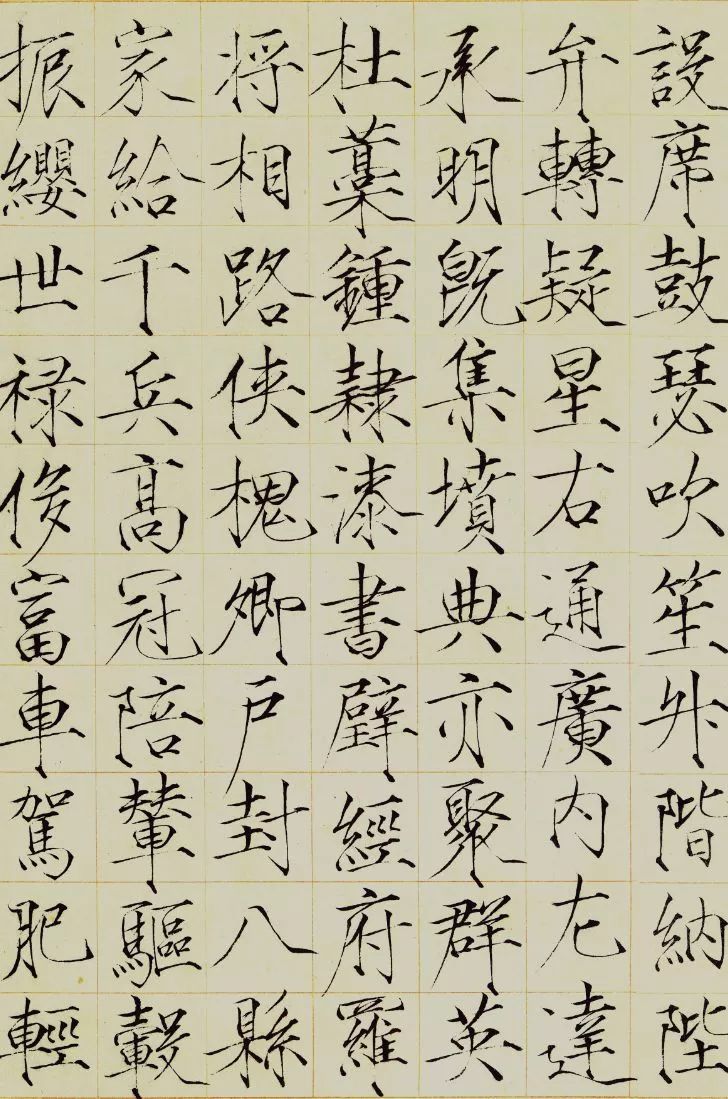 設席鼓瑟吹笙升階納陛
弁轉疑星右通廣内左達
承明既集墳典亦聚群英
杜藁鍾隸漆書壁經府羅
将相路俠槐卿戶封八縣
家給千兵髙冠陪輦驅轂
振纓世禄侈富車駕肥輕